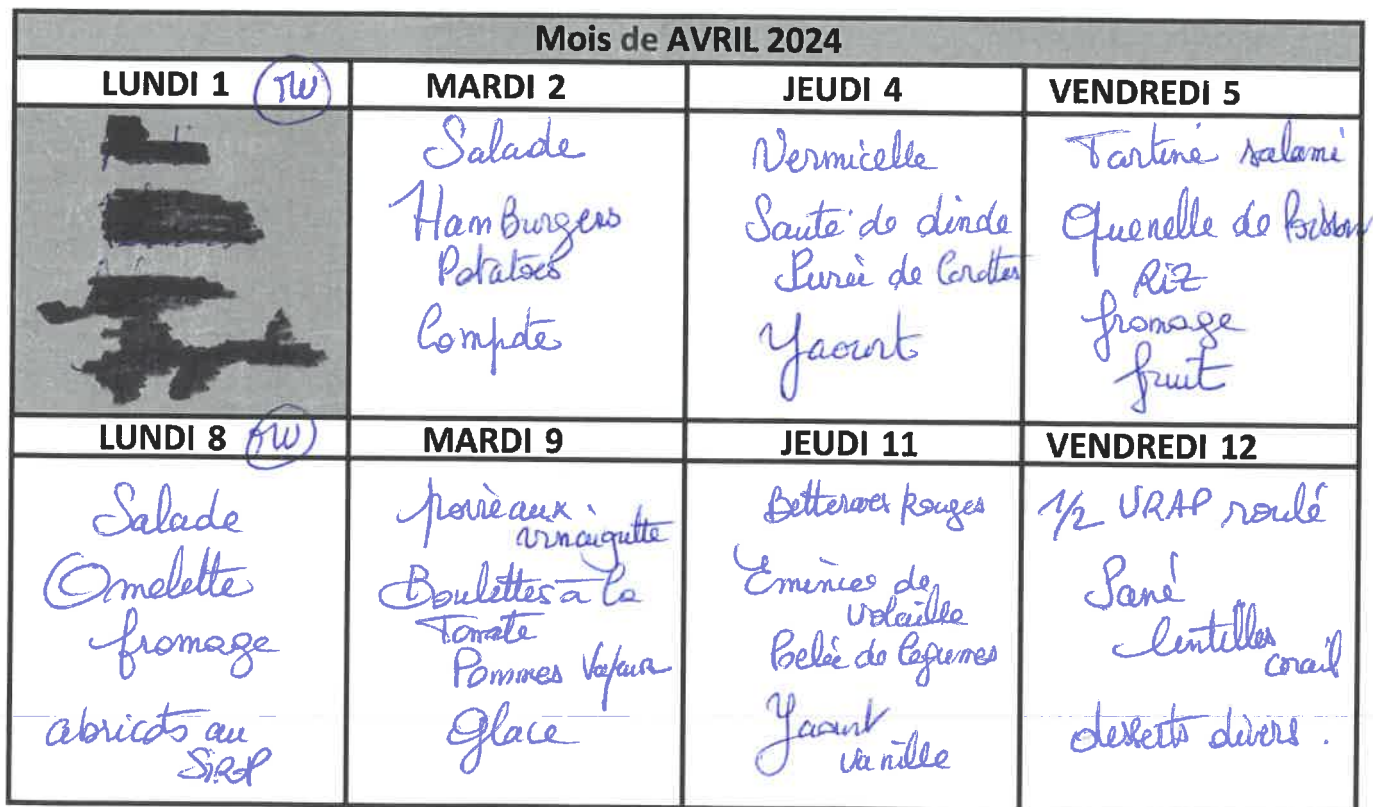 Mois de AVRIL 2024
LUNDI 1 TW
MARDI 2
JEUDI 4
VENDREDI 5
Salade
HamBurgers
Potatoes
Compote
Vermicelle
Sauté de dinde
Purée de Carottes
Yaourt
Tartine salami
Quenelle de Poisson
RiZ
fromage
fruit
LUNDI 8 TW
MARDI 9
JEUDI 11
VENDREDI 12
Salade
Omelette
fromage
abricots au
SiROP
poireaux
vinaigrette
Boulettes à la
Tomate
Pommes Vapeur
Glace
Betteraves Rouges
Eminces de
volaille
Poelée de legumes
Yaourt
vanille
1/2 URAP roulé
Pané
lentilles
corail
desserts divers.